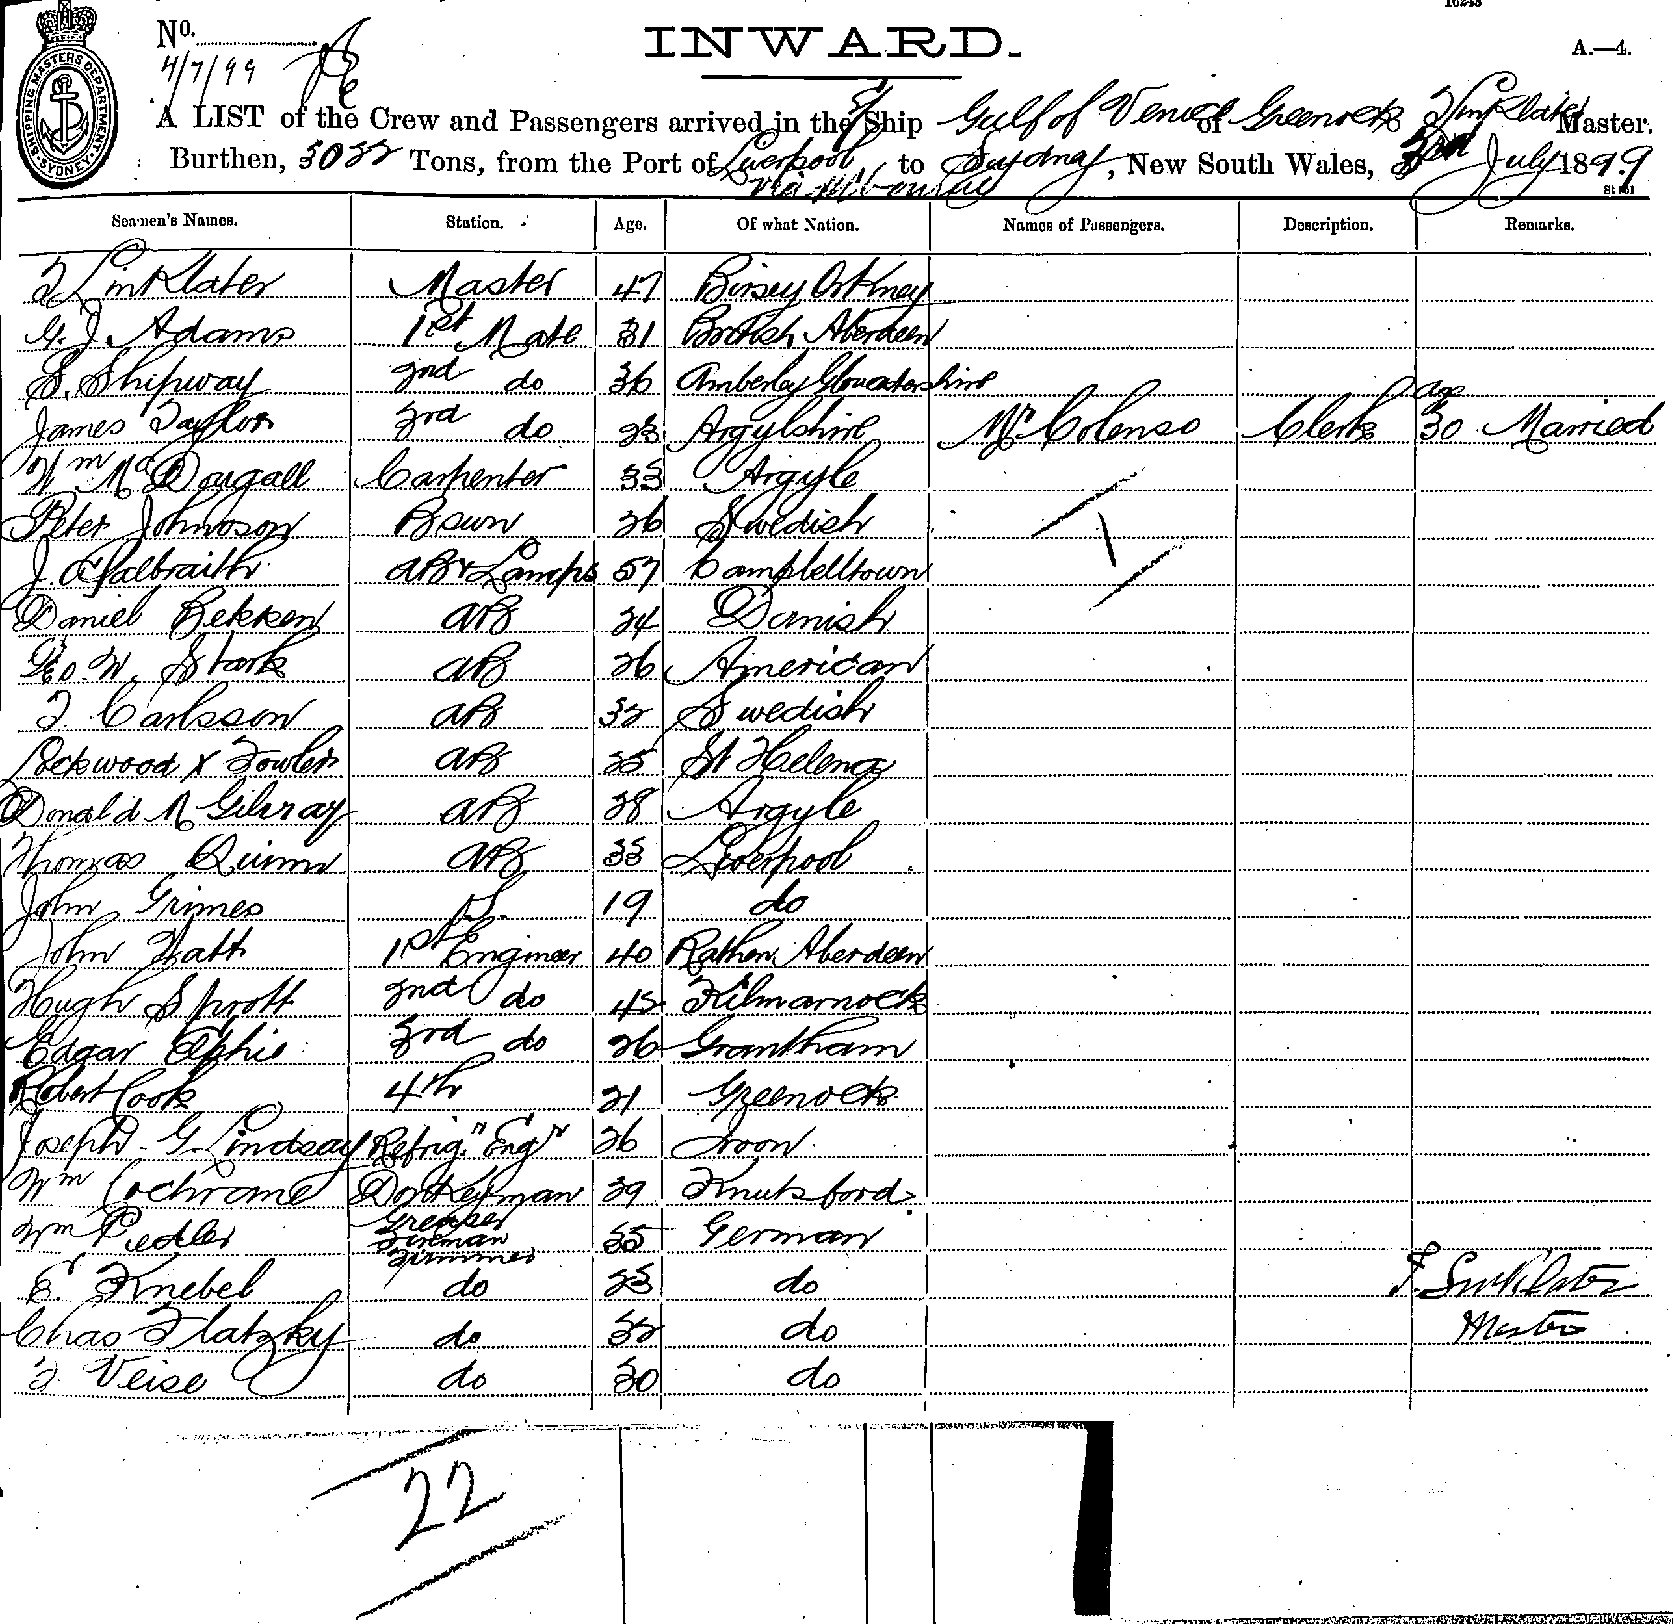 No.
4/7/99
INWARD.
A.—4.
SHIPPING MASTERS DEPARTMENT SYDNEY
A LIST of the Crew and Passengers arrived in the Ship Gulf of Venice of Greenock Linklater Master.
Burthen, 3022 Tons, from the Port of Liverpool to Sydney, New South Wales, 3rd July 1899
via Melbourne
Seamen's Names. Station. Age. Of what Nation. Names of Passengers. Description. Remarks.
Linklater Master 47 Birsey Orkney
G. J. Adams 1st Mate 31 British Aberdeen
S. Shipway 2nd do 36 Amberley Gloucestershire
James Taylor 3rd do 23 Argylshire Mr Colenso Clerk age 30 Married
Wm McDougall Carpenter 33 Argyle
Peter Johnson Bsun 26 Swedish
J. Galbraith AB & Lamps 57 Campbelltown
Daniel Bekken AB 24 Danish
Geo. W. Stark AB 26 American
F. Carlsson AB 32 Swedish
Lockwood x Fowler AB 25 St Helena
Donald McGilvray AB 28 Argyle
Thomas Quinn AB 33 Liverpool
John Grimes 19 do
John Watt 1st Engineer 40 Rathen Aberdeen
Hugh Sprott 2nd do 42 Kilmarnock
Edgar 3rd do 26 Grantham
Robert Cook 4th 21 Greenock
Joseph G. Lindsay Refrig. Engr 26 Troon
Wm Cochrane Donkeyman 29 Knutsford
Wm Piedler Greaser Fireman Trimmer 35 German
E. Knebel do 23 do
Chas Flatzky do 32 do
F. Veise do 30 do
F. Linklater
Master
22